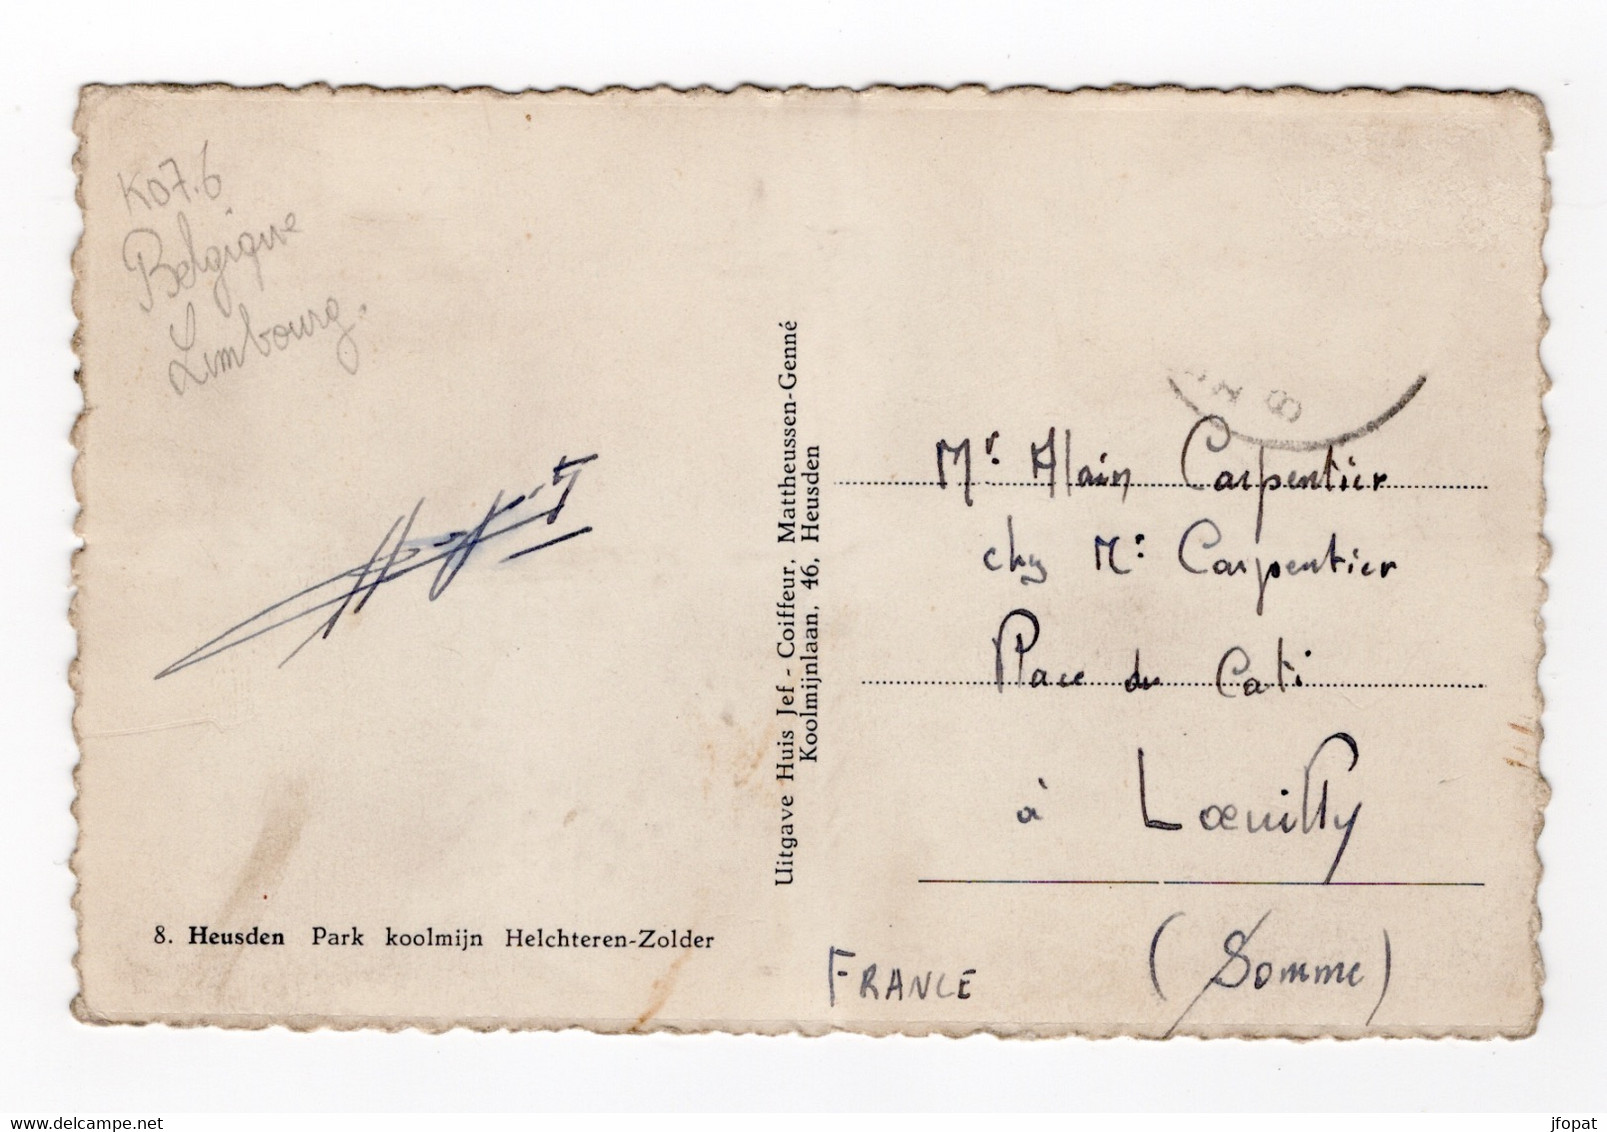 K07.6
Belgique
Limbourg.
8. Heusden Park koolmijn Helchteren-Zolder
Uitgave Huis Jef - Coiffeur, Mattheussen-Genné
Koolmijnlaan, 46, Heusden
8
Mr. Alain Carpentier
chez Mr. Carpentier
Place du Cati
à Loeuilly
(Somme)
FRANCE
jfopat